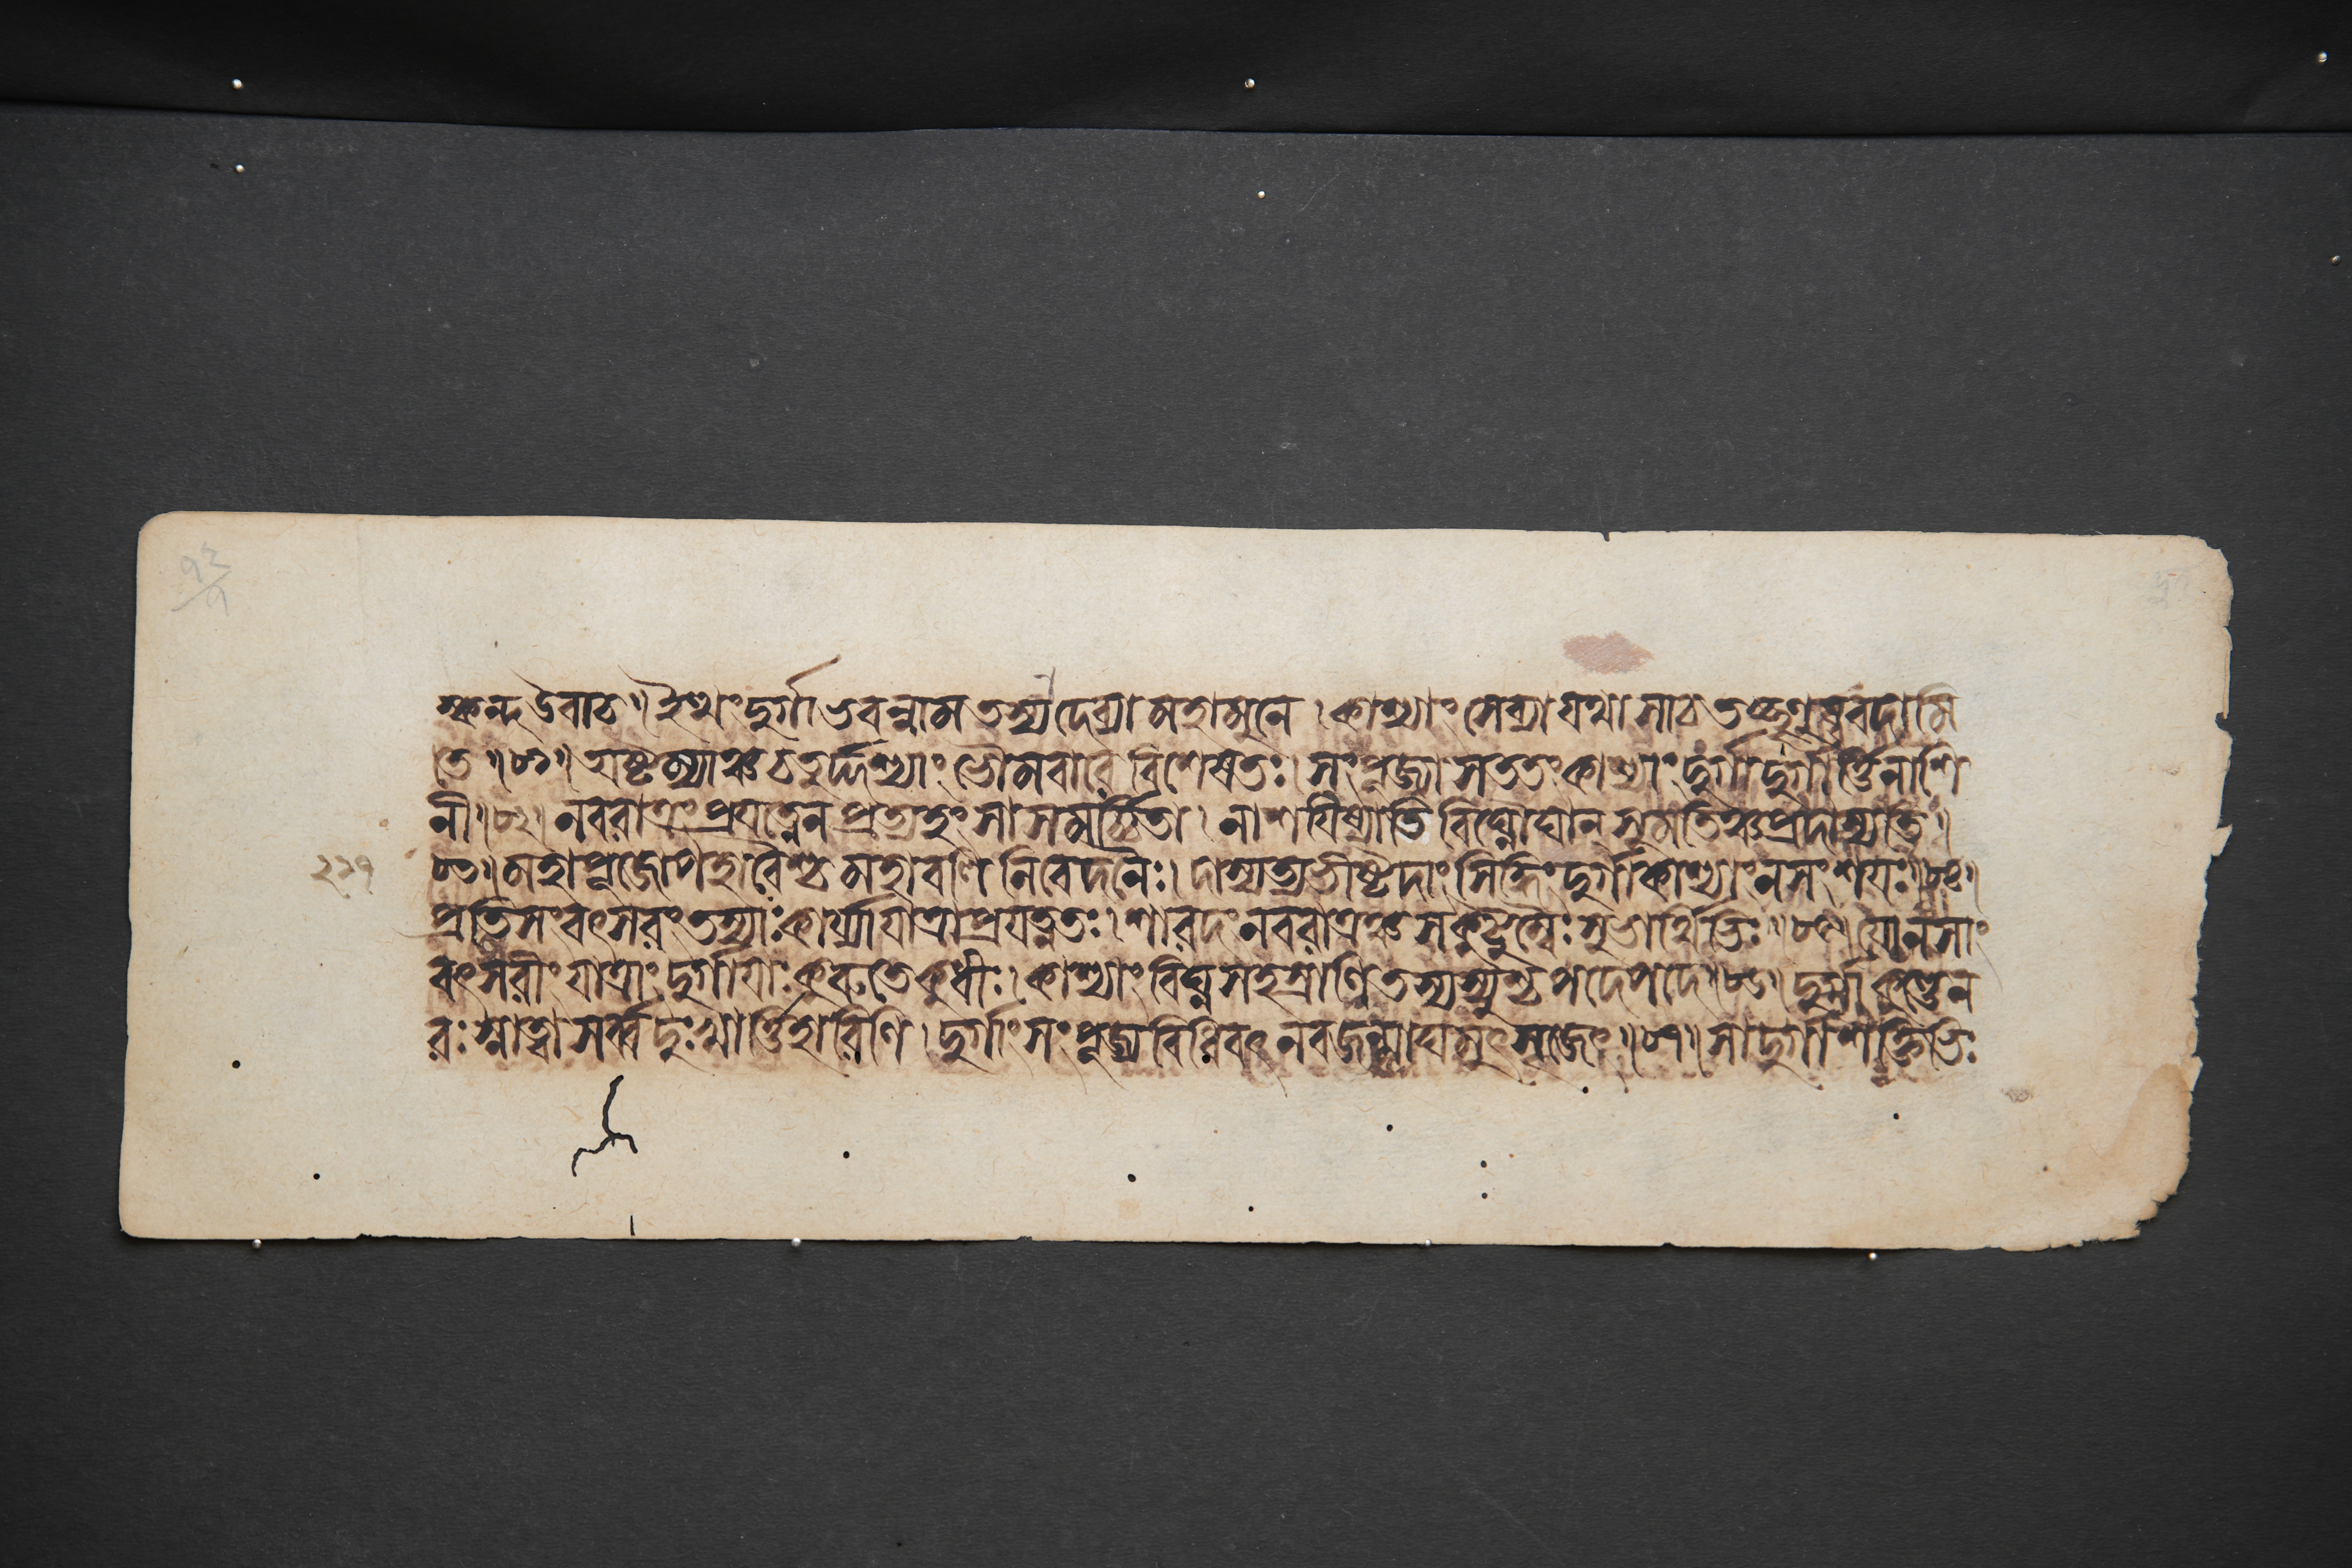 স্কন্দ উবাচ॥ ইত্থং দুর্গাভবন্নাম তস্যা দেব্যা মহামুনে। কাশ্যাং সেব্যা যথা সা চ তচ্ছৃণুষ্ব বদামি
তে॥৮১॥ অষ্টম্যাঞ্চ চতুর্দ্দশ্যাং ভৌমবারে বিশেষতঃ। সংপূজ্যা সততং কাশ্যাং দুর্গা দুর্গার্ত্তিনাশি
নী॥৮২॥ নবরাত্রং প্রযত্নেন প্রত্যহং সা সমর্চ্চিতা। নাশযিষ্যতি বিঘ্নৌঘান্ সুমতিঞ্চ প্রদাস্যতি॥
৮৩॥ মহাপূজোপহারৈশ্চ মহাবলি নিবেদনৈঃ। দাস্যত্যভীষ্টদাং সিদ্ধিং দুর্গা কাশ্যাং ন সংশযঃ॥৮৪॥
প্রতিসংবৎসরং তস্যাঃ কার্য্যা যাত্রা প্রযত্নতঃ। শারদং নবরাত্রঞ্চ সকুটুম্বৈঃ শুভার্থিভিঃ॥৮৫॥ যো ন সাং
বৎসরীং যাত্রাং দুর্গাযাঃ কুরুতে কুধীঃ। কাশ্যাং বিঘ্নসহস্রাণি তস্য স্যুশ্চ পদে পদে॥৮৬॥ দুর্গাকুণ্ডে ন
রঃ স্নাত্বা সর্ব্বদুঃখার্ত্তিহারিণি। দুর্গাং সংপূজ্য বিধিবৎ নবজন্মাঘমুৎসৃজেৎ॥৮৭॥ সা দুর্গা শক্তিভিঃ